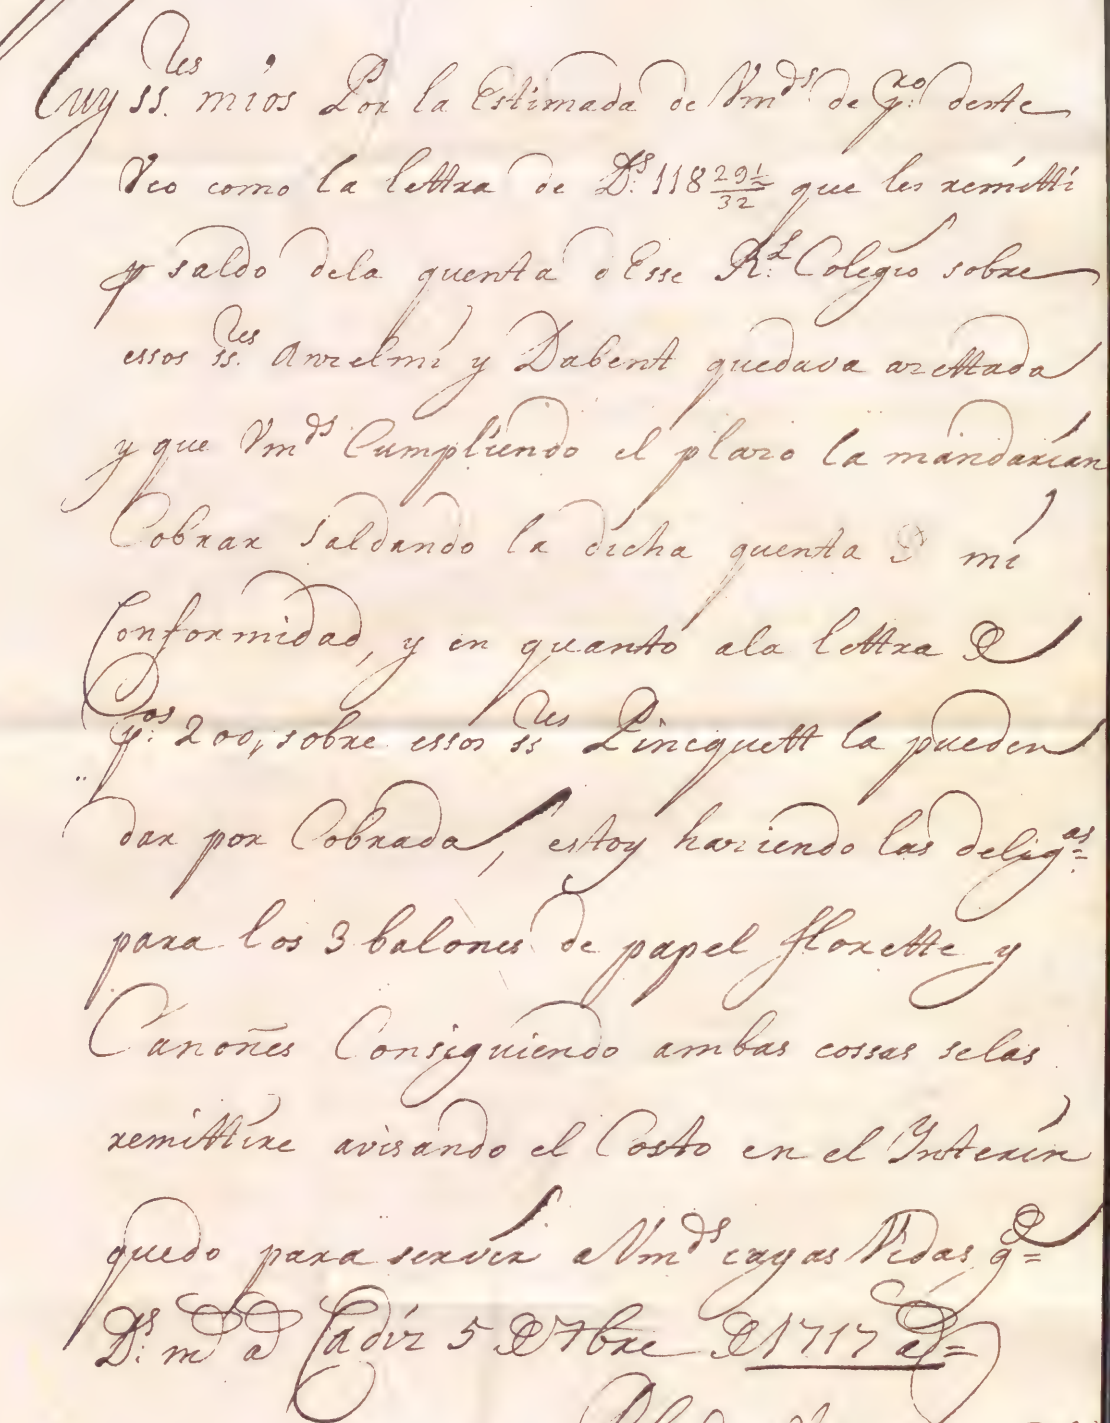 Muy ss.res mios Por la Estimada de Vmds de p.ro deste
Veo como la lettra de Ds. 118 29½/32 que les remitti
p saldo dela quenta d Esse Rl. Colegio sobre
essos ss.res Anzelmi y Dabent quedava azettada
y que Vmds Cumpliendo el plazo la mandarian
Cobrar saldando la dicha quenta D mi
Conformidad, y en quanto ala lettra D
p.os 200, sobre essos ss.res Pincquett la pueden
dar por Cobrada, estoy haziendo las delig.as
para los 3 balones de papel florette y
Canoñes Consiguiendo ambas cossas selas
remittire avisando el Costo en el Interin
quedo para servir a Vmds cuyas Vidas g.e
Ds. m.d a.s Cadiz 5 D 7bre D 1717 a.s